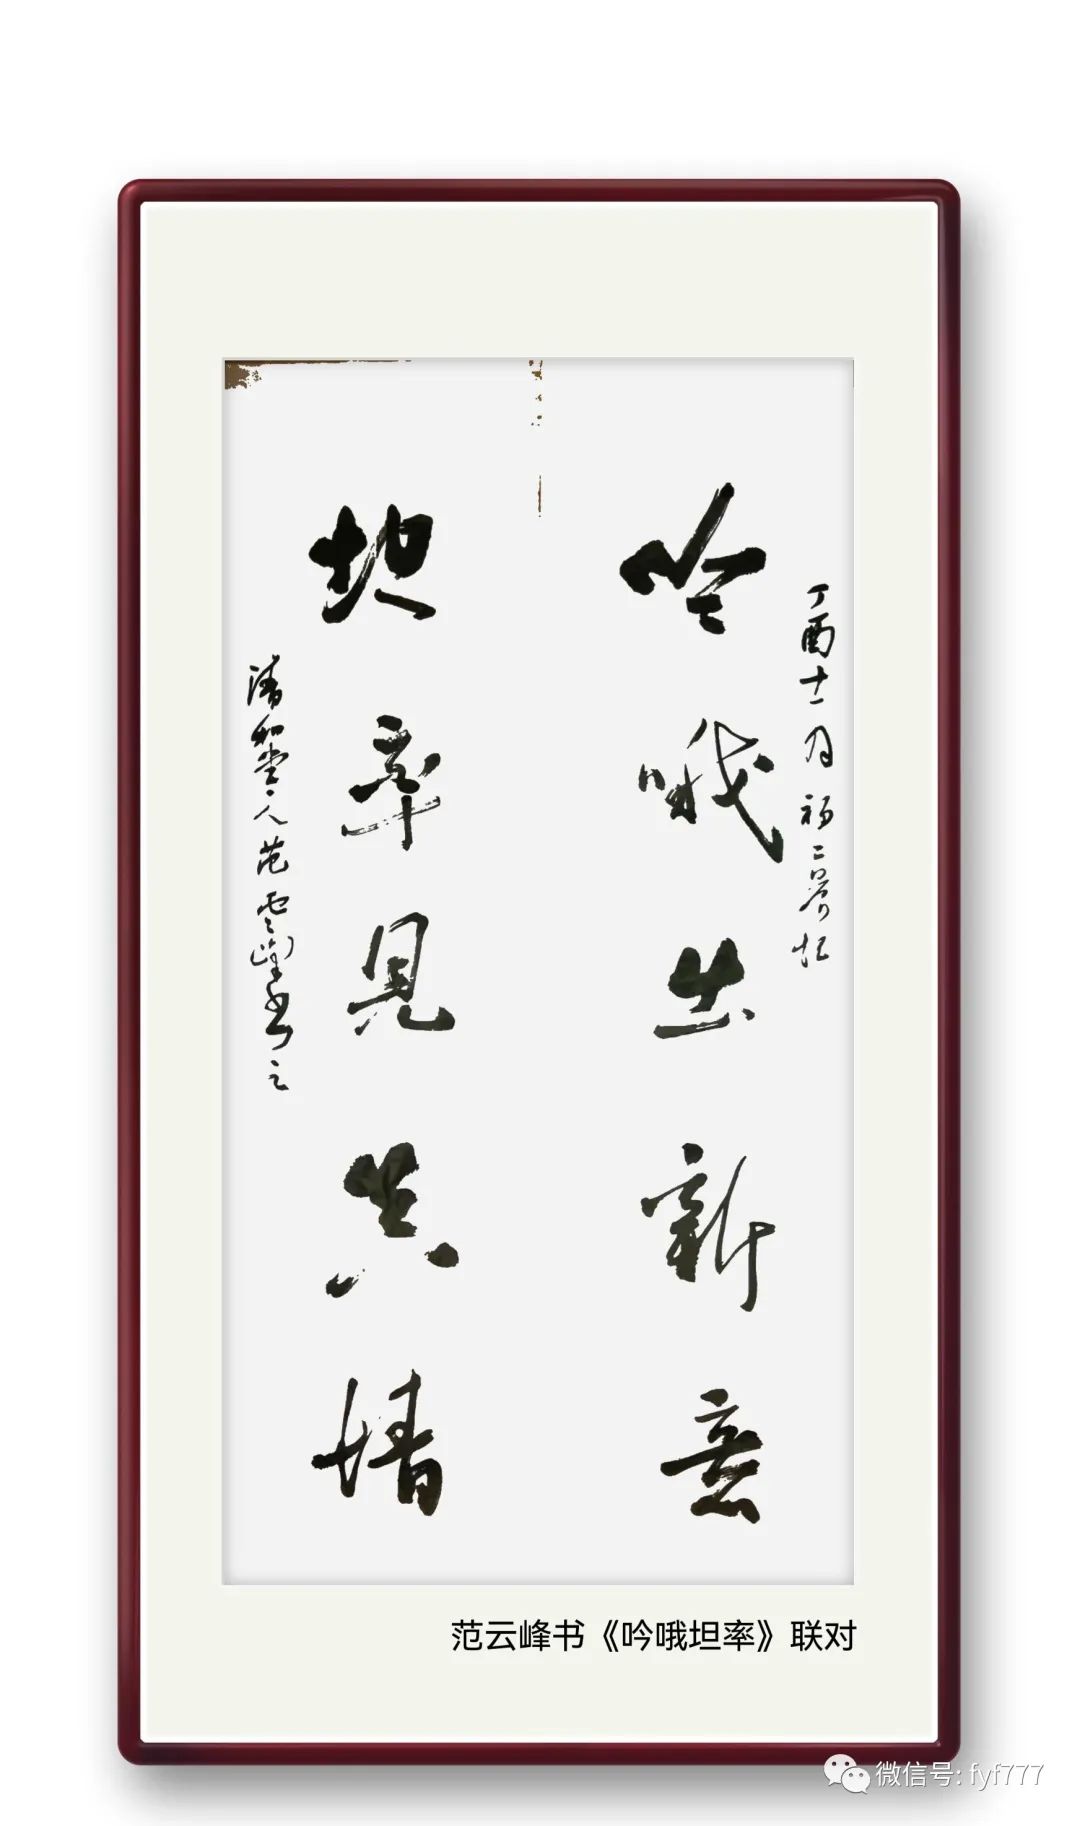 丁酉十一月初二
吟哦出新意
坦率見真情
清和堂人范雲峰书之
范云峰书《吟哦坦率》联对
微信号: fyf777